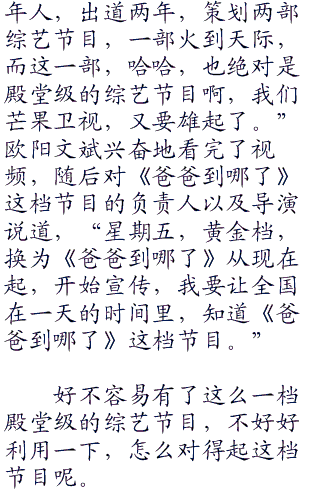 年人，出道两年，策划两部
综艺节目，一部火到天际，
而这一部，哈哈，也绝对是
殿堂级的综艺节目啊，我们
芒果卫视，又要雄起了。”
欧阳文斌兴奋地看完了视
频，随后对《爸爸到哪了》
这档节目的负责人以及导演
说道，“星期五，黄金档，
换为《爸爸到哪了》从现在
起，开始宣传，我要让全国
在一天的时间里，知道《爸
爸到哪了》这档节目。”
好不容易有了这么一档
殿堂级的综艺节目，不好好
利用一下，怎么对得起这档
节目呢。